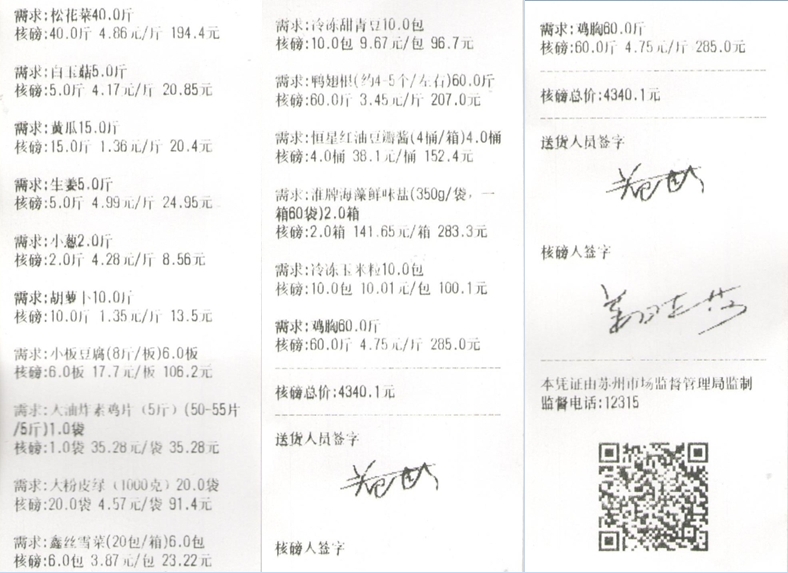 需求:松花菜40.0斤
核磅:40.0斤 4.86元/斤 194.4元
需求:白玉菇5.0斤
核磅:5.0斤 4.17元/斤 20.85元
需求:黄瓜15.0斤
核磅:15.0斤 1.36元/斤 20.4元
需求:生姜5.0斤
核磅:5.0斤 4.99元/斤 24.95元
需求:小葱2.0斤
核磅:2.0斤 4.28元/斤 8.56元
需求:胡萝卜10.0斤
核磅:10.0斤 1.35元/斤 13.5元
需求:小板豆腐(8斤/板)6.0板
核磅:6.0板 17.7元/板 106.2元
需求:大油炸素鸡片（5斤）(50-55片
/5斤)1.0袋
核磅:1.0袋 35.28元/袋 35.28元
需求:大粉皮绿（1000克）20.0袋
核磅:20.0袋 4.57元/袋 91.4元
需求:鑫丝雪菜(20包/箱)6.0包
核磅:6.0包 3.87元/包 23.22元
需求:冷冻甜青豆10.0包
核磅:10.0包 9.67元/包 96.7元
需求:鸭翅根(约4-5个/左右)60.0斤
核磅:60.0斤 3.45元/斤 207.0元
需求:恒星红油豆瓣酱(4桶/箱)4.0桶
核磅:4.0桶 38.1元/桶 152.4元
需求:淮牌海藻鲜味盐(350g/袋，一
箱60袋)2.0箱
核磅:2.0箱 141.65元/箱 283.3元
需求:冷冻玉米粒10.0包
核磅:10.0包 10.01元/包 100.1元
需求:鸡胸60.0斤
核磅:60.0斤 4.75元/斤 285.0元
核磅总价:4340.1元
送货人员签字
核磅人签字
需求:鸡胸60.0斤
核磅:60.0斤 4.75元/斤 285.0元
核磅总价:4340.1元
送货人员签字
核磅人签字
本凭证由苏州市场监督管理局监制
监督电话:12315